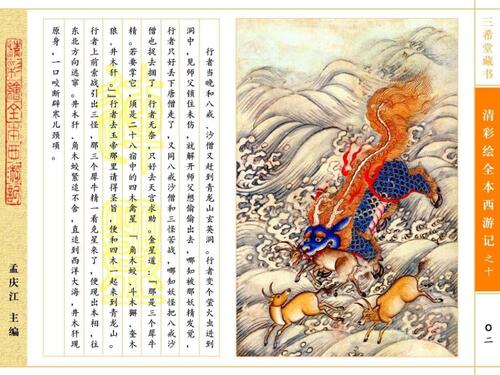 三希堂藏书
清彩绘全本西游记之十
〇二
行者当晚和八戒、沙僧又赶到青龙山玄英洞。行者变个萤火虫进到
洞中，见师父锁住未伤，就解开师父想偷偷出去，哪知被那妖精发觉，
行者只好丢下唐僧走了，又同八戒沙僧和三怪苦战，哪知妖怪把八戒沙
僧也捉去捆了。行者无奈，只好去天宫求助。金星道：“那是三个犀牛
精。若要拿它，须是二十八宿中的四木禽星“角木蛟、斗木獬、奎木
狼、井木犴。”行者去玉帝那里请得圣旨，便和四木一起来到青龙山。
行者上前索战引出三怪，那三个犀牛精一看克星来了，便现出本相，往
东北方向逃窜。井木犴、角木蛟紧追不舍，直追到西洋大海，井木犴现
原身，一口咬断辟寒儿颈项。
清彩繪全本西游記
孟庆江 主编